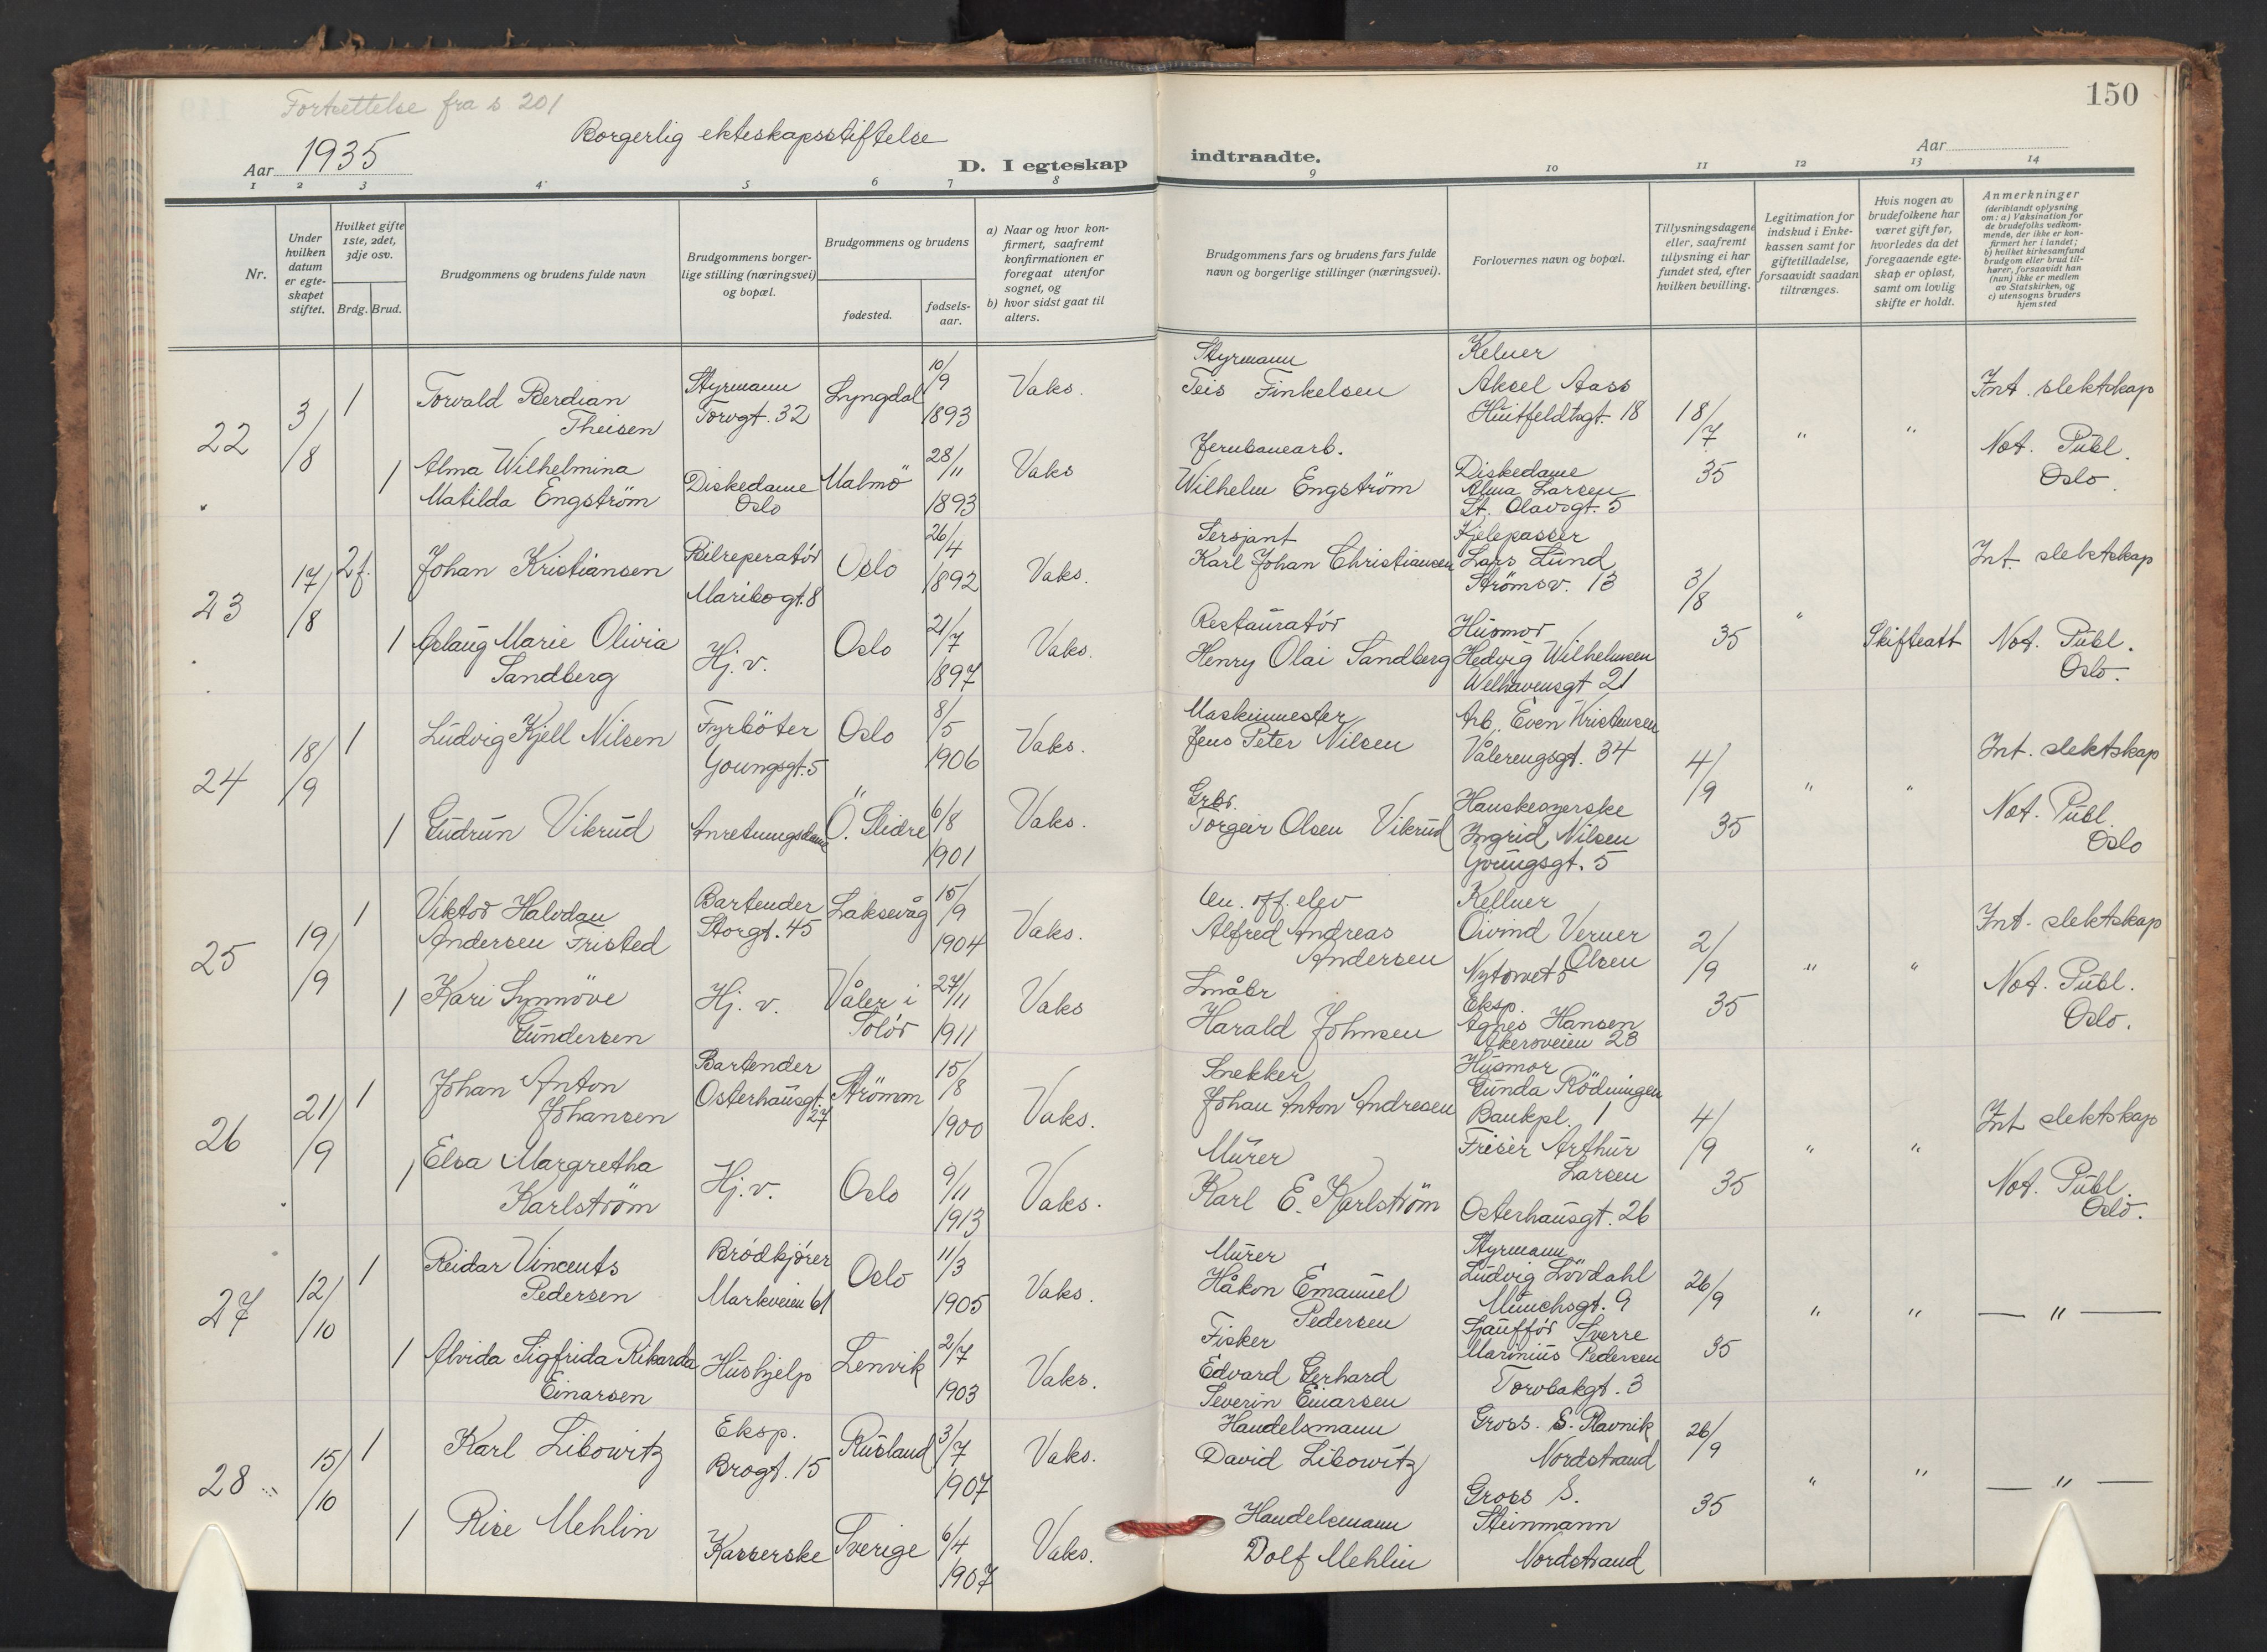 Fortsettelse fra s. 201
150
Borgerlig ekteskapsstiftelse
Aar 1935
D. I egteskap
indtraadte.
Aar
1 2 3 4 5 6 7 8 9 10 11 12 13 14
Nr.
Under hvilken datum er egte-skapet stiftet.
Hvilket gifte 1ste, 2det, 3dje osv.
Brdg. Brud.
Brudgommens og brudens fulde navn
Brudgommens borger-lige stilling (næringsvei) og bopæl.
Brudgommens og brudens
fødested.
fødsels-aar.
a) Naar og hvor kon-firmert, saafremt konfirmationen er foregaat utenfor sognet, og
b) hvor sidst gaat til alters.
Brudgommens fars og brudens fars fulde navn og borgerlige stillinger (næringsvei).
Forlovernes navn og bopæl.
Tillysningsdagene eller, saafremt tillysning ei har fundet sted, efter hvilken bevilling.
Legitimation for indskud i Enke-kassen samt for giftetilladelse, forsaavidt saadan tiltrænges.
Hvis nogen av brudefolkene har været gift før, hvorledes da det foregaaende egte-skap er opløst, samt om lovlig skifte er holdt.
Anmerkninger
(deriblandt oplysning om: a) Vaksination for de brudefolks vedkom-mende, der ikke er kon-firmert her i landet; b) hvilket kirkesamfund brudgom eller brud til-hører, forsaavidt han (hun) ikke er medlem av Statskirken, og c) utensogns bruders hjemsted
22 3/8 1 Torvald Berdian Theisen Styrmann Torvgt. 32 Lyngdal 10/9 1893 Vaks. Styrmann Teis Finkelsen Kelner Aksel Aass Huitfeldtsgt. 18 18/7 35 " " Int. slektskap
1 Alma Wilhelmina Matilda Engström Diskedame Oslo Malmö 28/11 1893 Vaks Jernbanearb. Wilhelm Engström Diskedame Alma Larsen St. Olavsgt. 5 Not. Publ. Oslo.
23 17/8 2f. Johan Kristiansen Bilreperatör Maribogt. 8 Oslo 26/4 1892 Vaks. Sersjant Karl Johan Christiansen Kjelepasser Lars Lund Strömsv. 13 3/8 35 " Skifteatt Int. slektskap
1 Aslaug Marie Olivia Sandberg Hj. v. Oslo 21/7 1897 Vaks. Restauratör Henry Olai Sandberg Husmor Hedvig Wilhelmsen Welhavensgt 21 Not. Publ. Oslo.
24 18/9 1 Ludvig Kjell Nilsen Fyrböter Youngsgt. 5 Oslo 8/5 1906 Vaks. Maskinmester Jens Peter Nilsen Arb. Even Kristensen Vålerengsgt. 34 4/9 35 " " Int. slektskap
1 Gudrun Vikrud Anretningsdame Ö. Slidre 6/8 1901 Vaks. Grbr. Torgeir Olsen Vikrud Hanskesyerske Ingrid Nilsen Youngsgt. 5 Not. Publ. Oslo
25 19/9 1 Viktor Halvdan Andersen Fristed Bartender Storgt. 45 Laksevåg 15/9 1904 Vaks. Un. off. elev Alfred Andreas Andersen Kellner Öivind Verner Olsen Nytorvet 5 2/9 35 " " Int. slektskap
1 Kari Synnöve Gundersen Hj. v. Våler i Solör 27/11 1911 Vaks Småbr Harald Johnsen Eksp. Agnes Hansen Akersveien 23 Not. Publ. Oslo.
26 21/9 1 Johan Anton Johansen Bartender Osterhausgt. 27 Strömm 15/8 1900 Vaks. Snekker Johan Anton Andresen Husmor Gunda Rödningen Bankpl. 1 4/9 35 " " Int slektskap
1 Elsa Margretha Karlström Hj. v. Oslo 9/11 1913 Vaks. Murer Karl E. Karlström Frisèr Arthur Larsen Osterhausgt. 26 Not. Publ. Oslo.
27 12/10 1 Reidar Vincents Pedersen Brödkjörer Markveien 61 Oslo 11/3 1905 Vaks. Murer Håkon Emanuel Pedersen Styrmann Ludvig Lövdahl Munchsgt. 9 26/9 35 " " — " —
1 Alvida Sigfrida Rikarda Einarsen Hushjelp Lenvik 2/7 1903 Vaks. Fisker Edvard Gerhard Severin Einarsen Sjaufför Sverre Marinius Pedersen Torvbakgt. 3
28 15/10 1 Karl Libowitz Eksp. Brogt. 15 Rusland 3/7 1907 Vaks. Handelsmann David Libowitz Gross. S. Plavnik Nordstrand 26/9 35 " " — " —
1 Rise Mehlin Kasserske Sverige 6/4 1907 Vaks. Handelsmann Dolf Mehlin Gross S. Steinmann Nordstrand